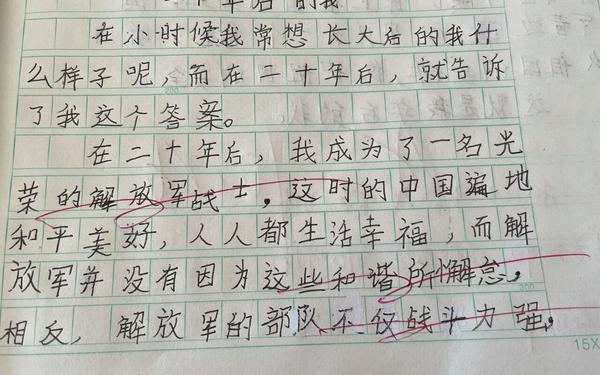 十年后的我
在小时候我常想长大后的我什
么样子呢,而在二十年后,就告诉
了我这个答案。
在二十年后,我成为了一名光
荣的解放军战士,这时的中国遍地
和平美好,人人都生活幸福,而解
放军并没有因为这些和谐所懈怠,
相反,解放军的部队不仅战斗力强,
200
200
15X